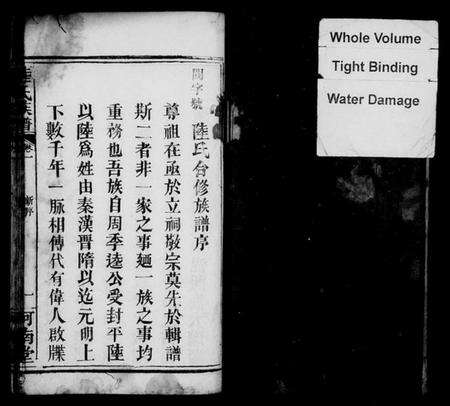 Whole Volume
Tight Binding
Water Damage
閏字號
陸氏合修族譜序
尊祖在亟於立祠敬宗莫先於輯譜
斯二者非一家之事廼一族之事均
重務也吾族自周季逵公受封平陸
以陸為姓由秦漢晉隋以迄元明上
下數千年一脈相傳代有偉人啟牒
陸氏族譜
新序
一
河南堂